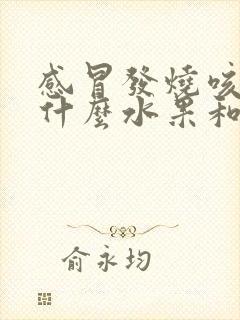 感冒發燒咳
什麼水果和
俞永均